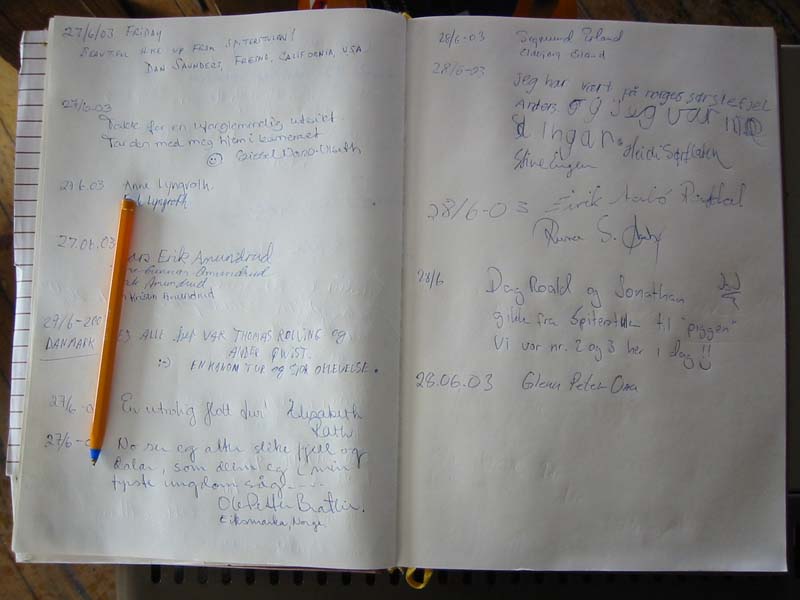 27/6/03 FRIDAY
BEAUTIFUL HIKE UP FROM SPITERSTULEN!
DAN SAUNDERS, FRESNO, CALIFORNIA, USA
27/6-03
Takk for en uforglemmelig utsikt.
Tar den med meg hjem i kameraet
27.6.03 Anne Lyngroth
Lyngroth
27.06.03 Erik Amundrud
Gunnar Amundrud
Amundrud
Kristin Amundrud
27/6-200
DANMARK
HEJ ALLE HER VAR THOMAS ROLVING og
KVIST.
TUR og STOR OPLEVELSE.
27/6-0 En utrolig flott tur! Elizabeth
Rath
27/6-0 No ser eg atter slike fjell og
dalar, som deim eg i min
fyrste ungdom såg
Ole Petter Bratlie.
Eiksmarka, Norge.
28/6-03 Sigmund Eiland
Eiland
28/6-03 Jeg har vært på norges største fjel
Anders og jeg var in
Stine Lingen Heidi Sørflaten
28/6-03 Eirik
Runa S.
28/6 Dag Roald og Jonathan
gikk fra Spiterstulen til "piggen"
Vi var nr. 2 og 3 her i dag!!
28.06.03 Glenn Peter